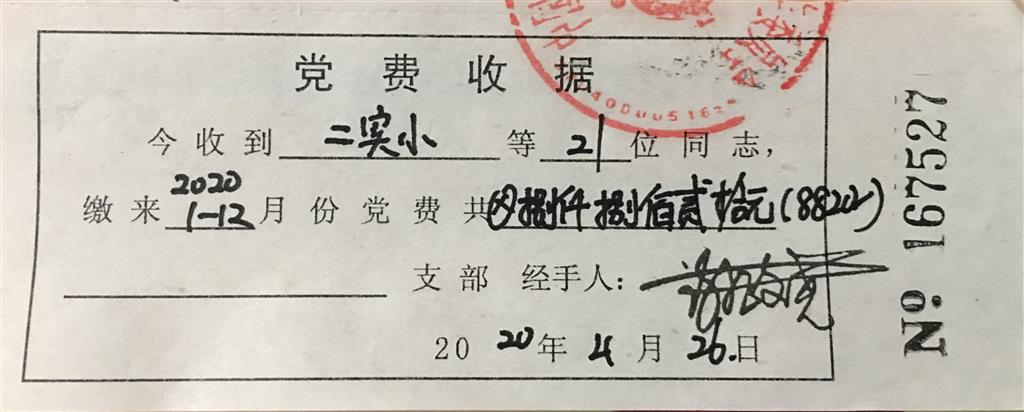 党费收据
今收到二实小等21位同志,
缴来2020 1-12月份党费共⊗捌仟捌佰贰拾元(8820)
支部 经手人:
2020年4月26日
No 167527